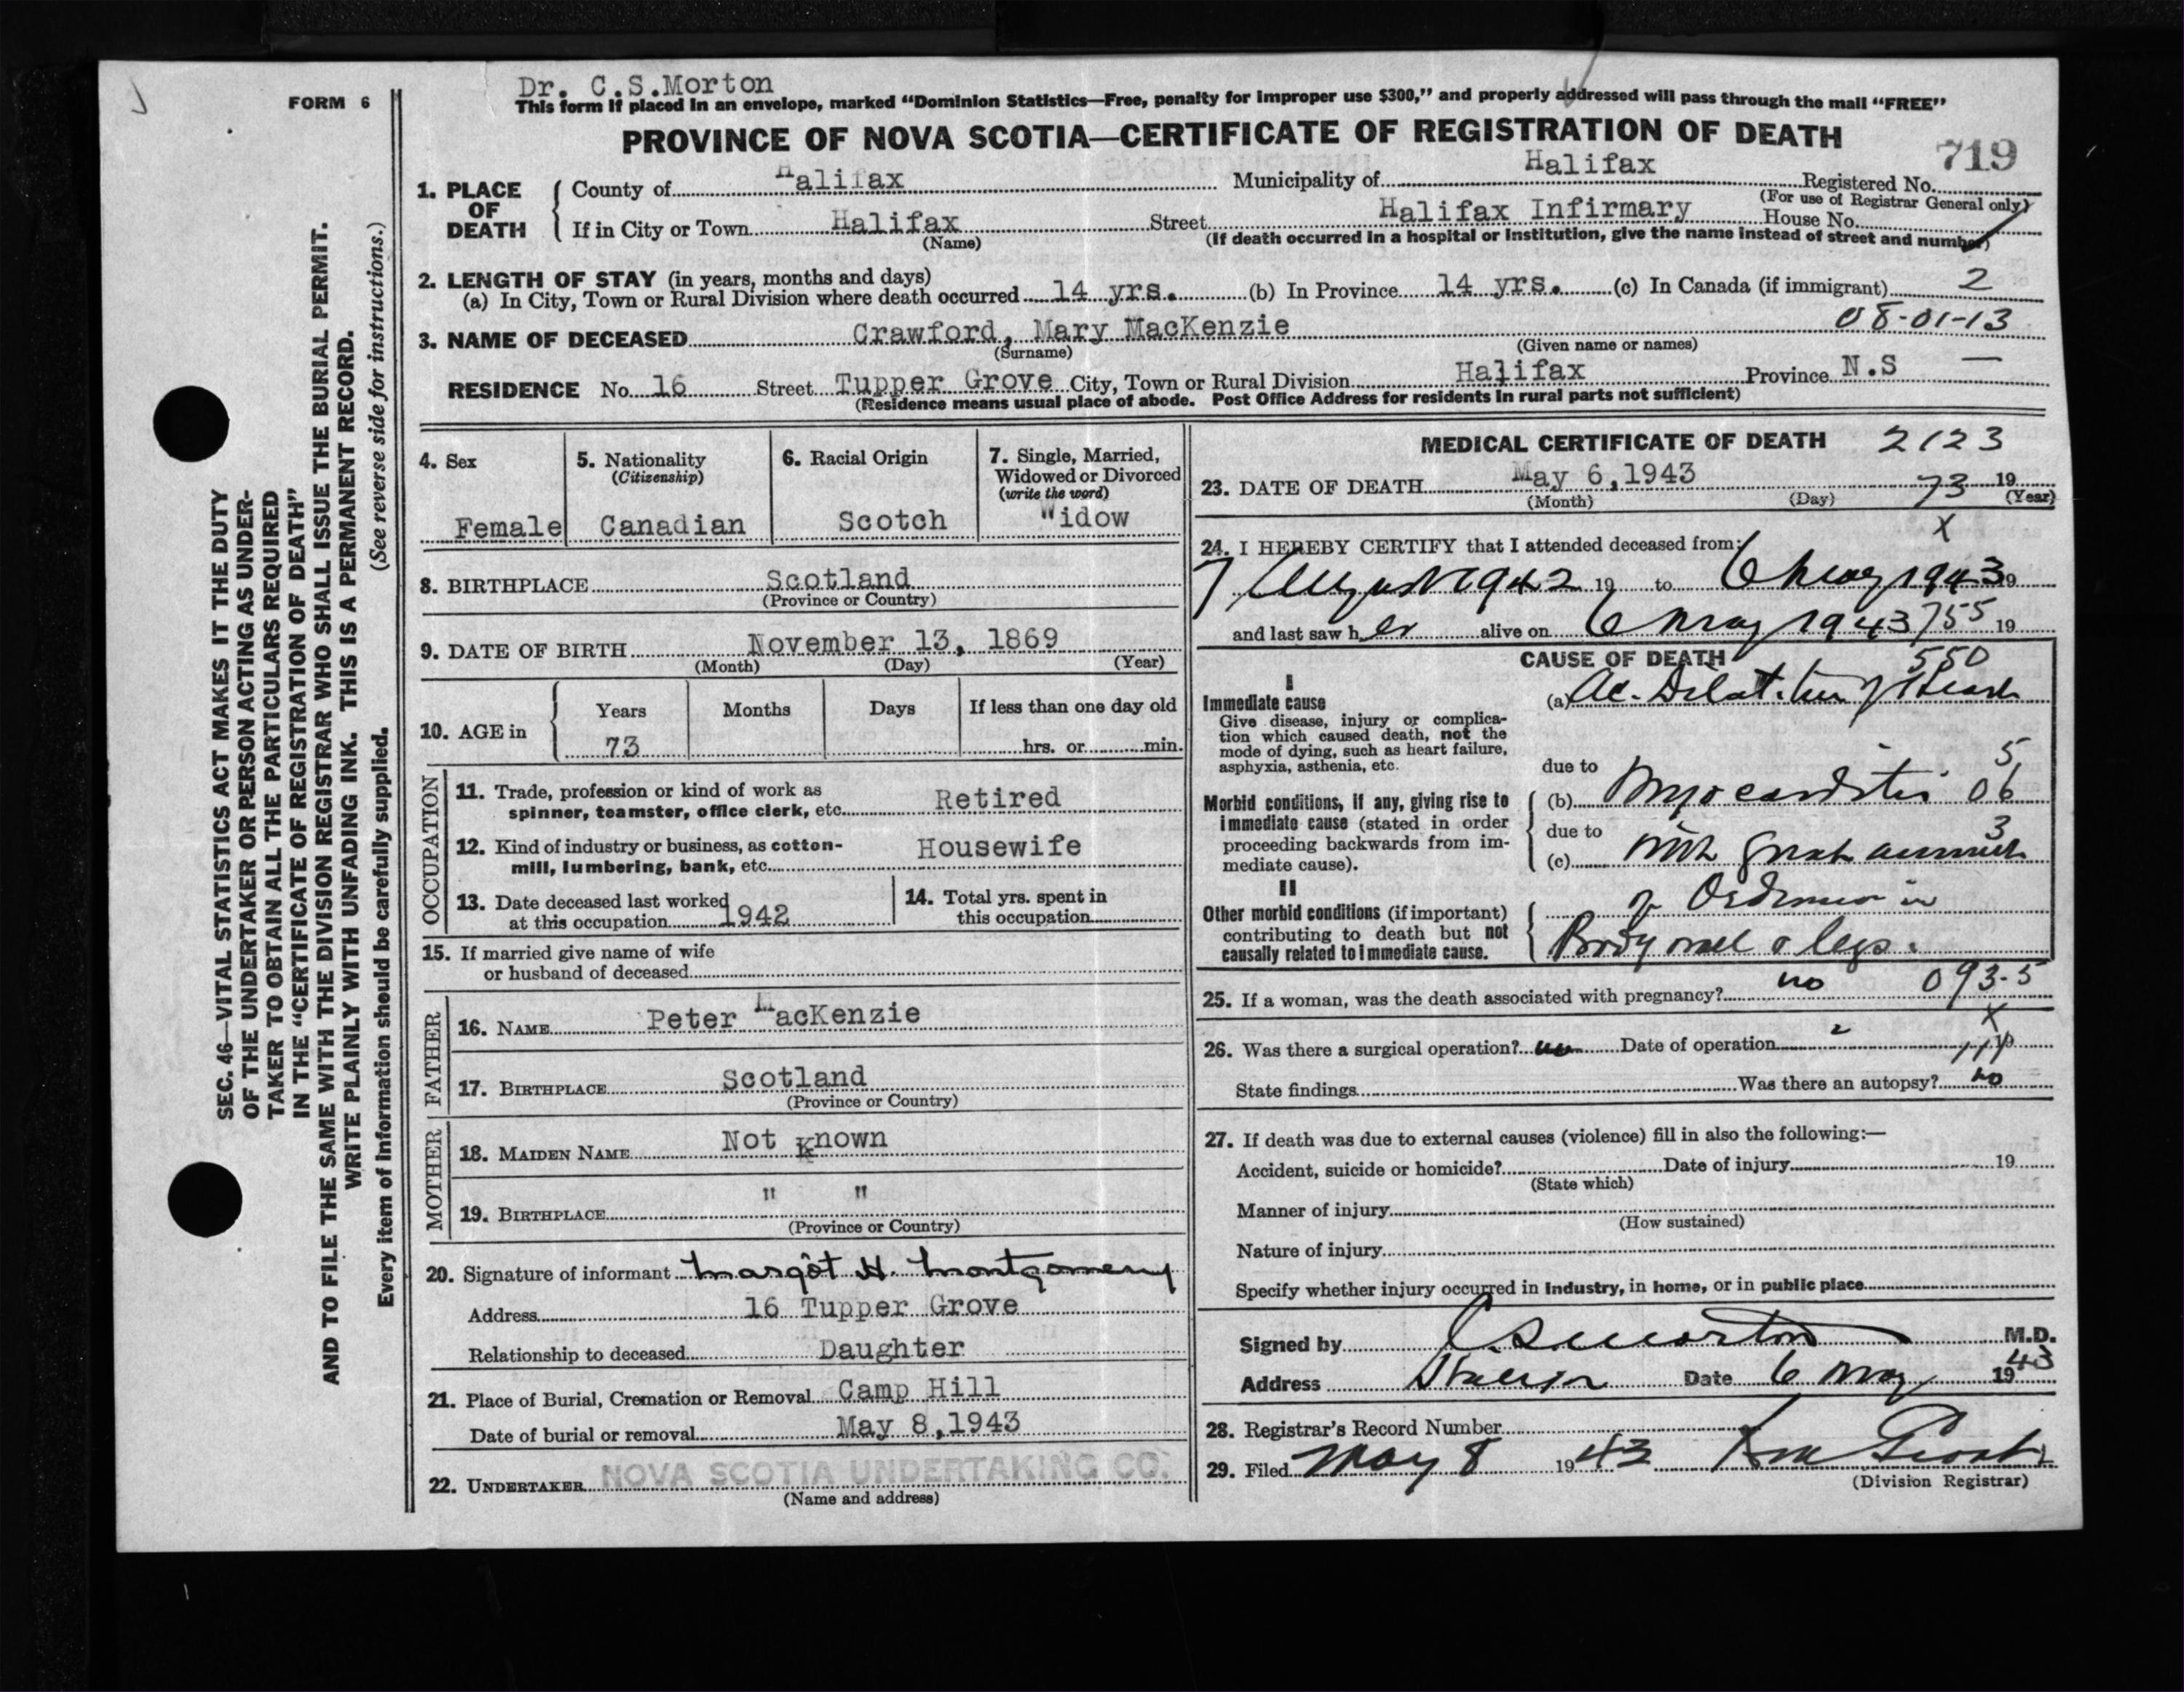 Dr. C.S.Morton
FORM 6
This form if placed in an envelope, marked “Dominion Statistics—Free, penalty for improper use $300,” and properly addressed will pass through the mail “FREE”
PROVINCE OF NOVA SCOTIA—CERTIFICATE OF REGISTRATION OF DEATH
719
1. PLACE OF DEATH
County of Halifax Municipality of Halifax Registered No.
(For use of Registrar General only)
If in City or Town Halifax Street Halifax Infirmary House No.
(Name) (If death occurred in a hospital or institution, give the name instead of street and number)
2. LENGTH OF STAY (in years, months and days)
(a) In City, Town or Rural Division where death occurred 14 yrs. (b) In Province 14 yrs. (c) In Canada (if immigrant) 2
08-01-13
3. NAME OF DECEASED Crawford, Mary MacKenzie
(Surname) (Given name or names)
RESIDENCE No. 16 Street Tupper Grove City, Town or Rural Division Halifax Province N.S —
(Residence means usual place of abode. Post Office Address for residents in rural parts not sufficient)
4. Sex
Female
5. Nationality
(Citizenship)
Canadian
6. Racial Origin
Scotch
7. Single, Married,
Widowed or Divorced
(write the word)
Widow
8. BIRTHPLACE Scotland
(Province or Country)
9. DATE OF BIRTH November 13, 1869
(Month) (Day) (Year)
10. AGE in
Years Months Days If less than one day old
73 hrs. or min.
OCCUPATION
11. Trade, profession or kind of work as
spinner, teamster, office clerk, etc. Retired
12. Kind of industry or business, as cotton-
mill, lumbering, bank, etc. Housewife
13. Date deceased last worked
at this occupation 1942
14. Total yrs. spent in
this occupation
15. If married give name of wife
or husband of deceased
FATHER
16. NAME Peter MacKenzie
17. BIRTHPLACE Scotland
(Province or Country)
MOTHER
18. MAIDEN NAME Not known
19. BIRTHPLACE " "
(Province or Country)
20. Signature of informant Margôt H. Montgomery
Address 16 Tupper Grove
Relationship to deceased Daughter
21. Place of Burial, Cremation or Removal Camp Hill
Date of burial or removal May 8,1943
22. UNDERTAKER NOVA SCOTIA UNDERTAKING CO.
(Name and address)
MEDICAL CERTIFICATE OF DEATH 2123
23. DATE OF DEATH May 6,1943 73 19
(Month) (Day) (Year)
X
24. I HEREBY CERTIFY that I attended deceased from:
7 August 1942 19 to 6 May 1943 19
and last saw her alive on 6 May 1943 755 19
CAUSE OF DEATH 550
I
Immediate cause
Give disease, injury or complica-
tion which caused death, not the
mode of dying, such as heart failure,
asphyxia, asthenia, etc.
(a) Ac. Dilatation of Heart
due to
5
Morbid conditions, if any, giving rise to
immediate cause (stated in order
proceeding backwards from im-
mediate cause).
(b) Myocarditis 06
due to
3
(c) with great amount
II
Other morbid conditions (if important)
contributing to death but not
causally related to immediate cause.
of Oedema in
Body wall & legs.
25. If a woman, was the death associated with pregnancy? no 093-5
X
26. Was there a surgical operation? no Date of operation 19
State findings Was there an autopsy? no
27. If death was due to external causes (violence) fill in also the following:—
Accident, suicide or homicide? Date of injury 19
(State which)
Manner of injury
(How sustained)
Nature of injury
Specify whether injury occurred in industry, in home, or in public place
Signed by C.S. Morton M.D.
Address Halifax Date 6 May 1943
28. Registrar's Record Number
29. Filed May 8 1943
(Division Registrar)
SEC. 46—VITAL STATISTICS ACT MAKES IT THE DUTY
OF THE UNDERTAKER OR PERSON ACTING AS UNDER-
TAKER TO OBTAIN ALL THE PARTICULARS REQUIRED
IN THE “CERTIFICATE OF REGISTRATION OF DEATH”
AND TO FILE THE SAME WITH THE DIVISION REGISTRAR WHO SHALL ISSUE THE BURIAL PERMIT.
WRITE PLAINLY WITH UNFADING INK. THIS IS A PERMANENT RECORD.
Every item of information should be carefully supplied. (See reverse side for instructions.)